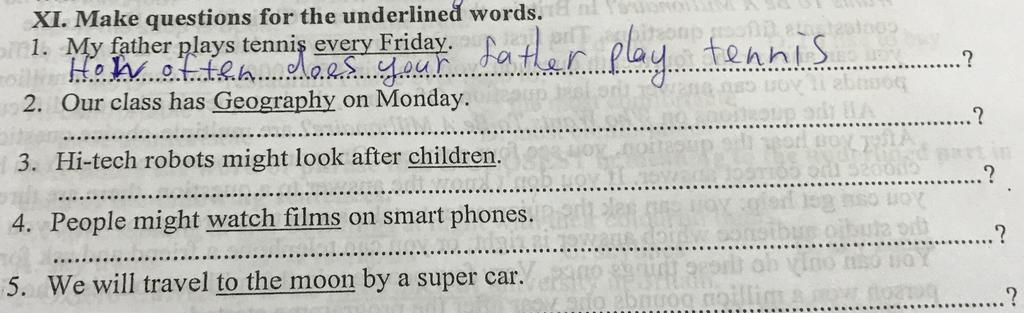 XI. Make questions for the underlined words.
1. My father plays tennis every Friday.
How often does your father play tennis ?
2. Our class has Geography on Monday.
?
3. Hi-tech robots might look after children.
?
4. People might watch films on smart phones.
?
5. We will travel to the moon by a super car.
?